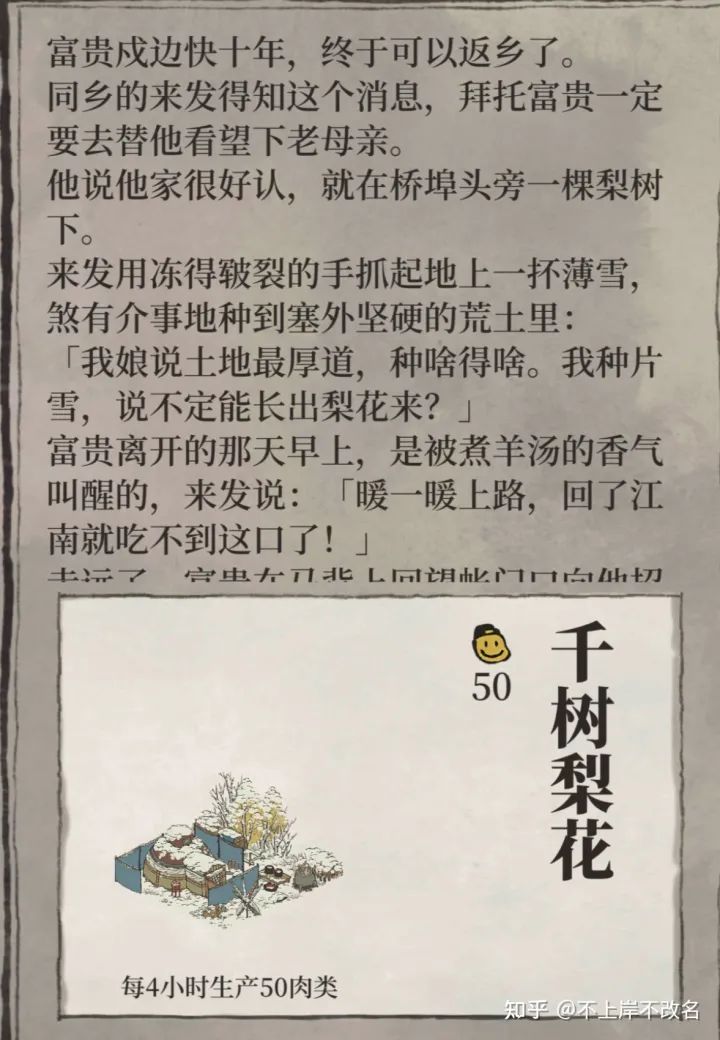 富贵戍边快十年，终于可以返乡了。
同乡的来发得知这个消息，拜托富贵一定
要去替他看望下老母亲。
他说他家很好认，就在桥埠头旁一棵梨树
下。
来发用冻得皲裂的手抓起地上一抔薄雪，
煞有介事地种到塞外坚硬的荒土里：
「我娘说土地最厚道，种啥得啥。我种片
雪，说不定能长出梨花来？」
富贵离开的那天早上，是被煮羊汤的香气
叫醒的，来发说：「暖一暖上路，回了江
南就吃不到这口了！」
走远了，富贵在马背上回望帐门口向他招
50
千树梨花
每4小时生产50肉类
知乎 @不上岸不改名